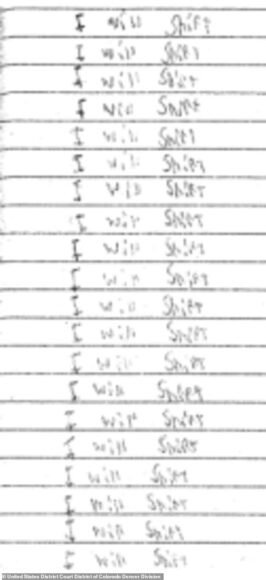 I will Shift
I will Shift
I will Shift
I will Shift
I will Shift
I will Shift
I will Shift
I will Shift
I will Shift
I will Shift
I will Shift
I will Shift
I will Shift
I will Shift
I will Shift
I will Shift
I will Shift
I will Shift
I will Shift
I will Shift
© United States District Court District of Colorado Denver Division